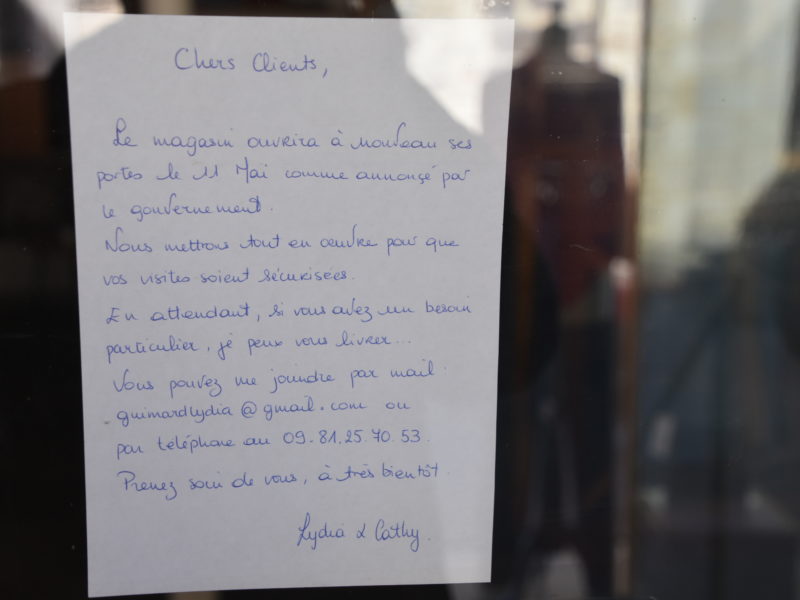 Chers Clients,
Le magasin ouvrira à nouveau ses
portes le 11 Mai comme annonçé par
le gouvernement.
Nous mettrons tout en œuvre pour que
vos visites soient sécurisées.
En attendant, si vous avez un besoin
particulier, je peux vous livrer...
Vous pouvez me joindre par mail.
guimardlydia@gmail.com ou
par téléphone au 09.81.25.70.53.
Prenez soin de vous, à très bientôt.
Lydia & Cathy.